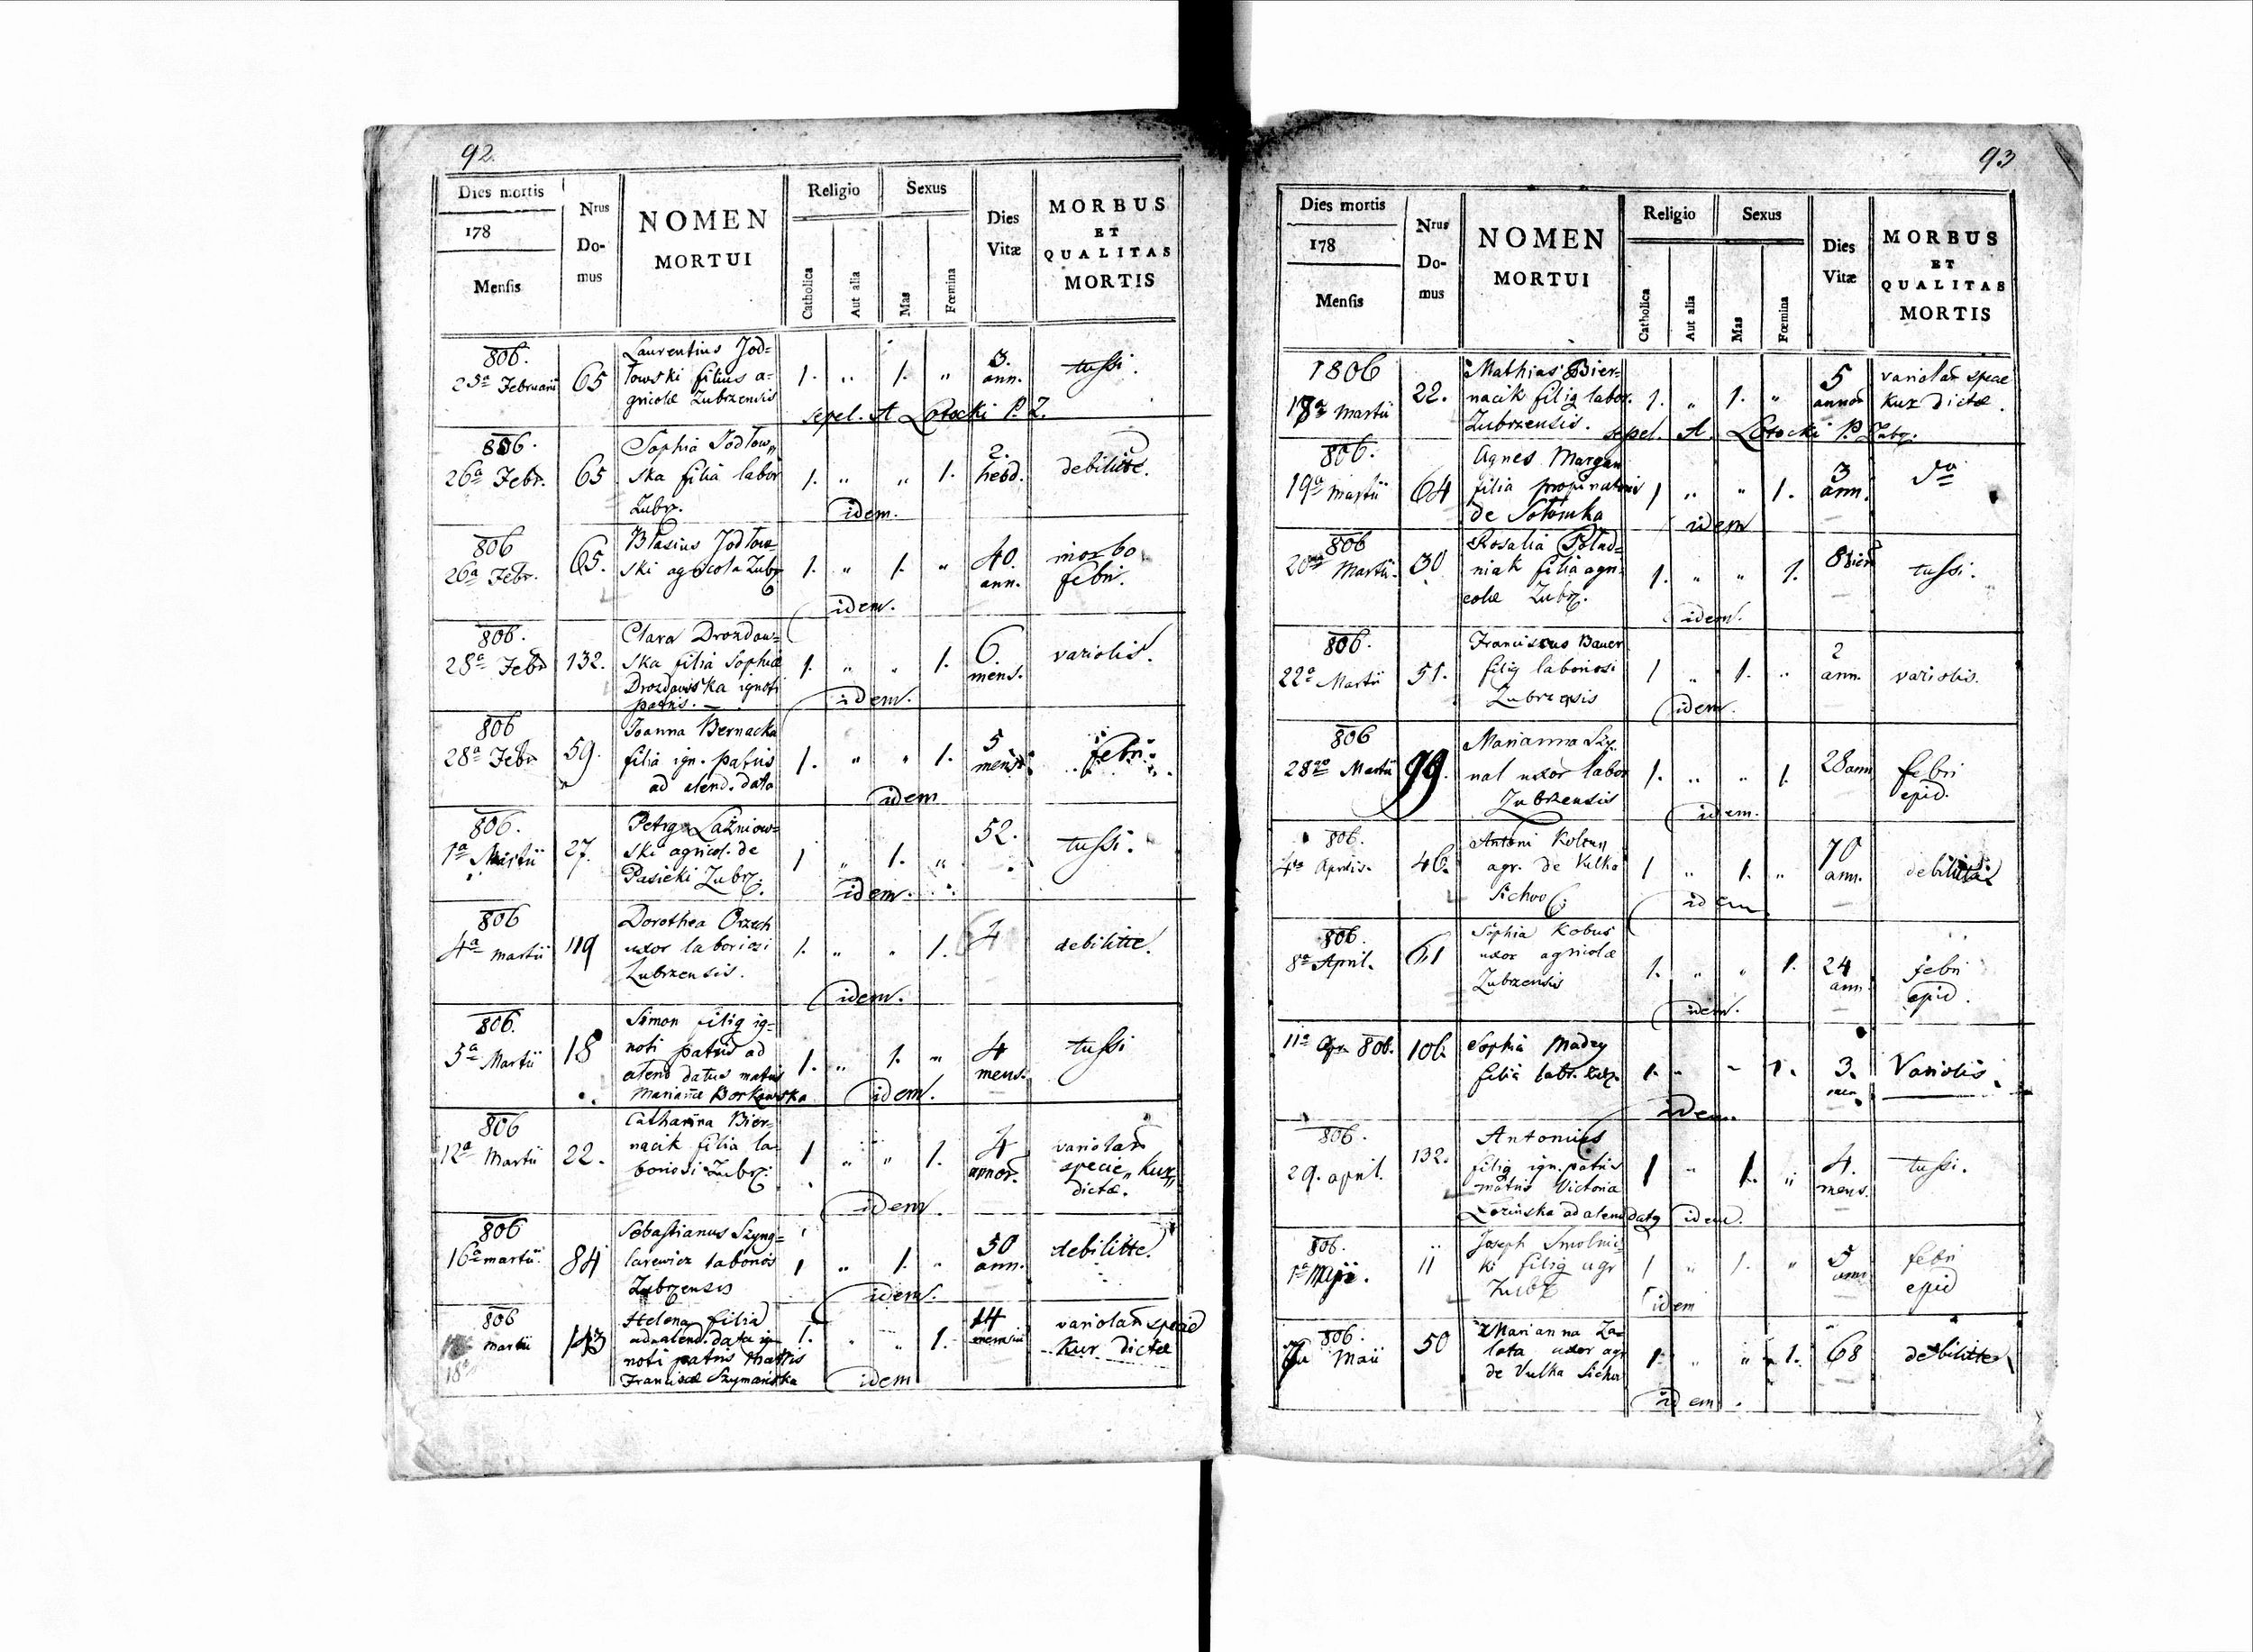 92.
Dies mortis
178
Mensis
Nrus
Do-
mus
NOMEN
MORTUI
Religio
Catholica
Aut alia
Sexus
Mas
Fœmina
Dies
Vitæ
MORBUS
ET
QUALITAS
MORTIS
806.
25a Februarii 65
Laurentius Jod=
łowski filius a=
gricolæ Zubrzensis
1. „ 1. „
3.
ann.
tussi.
sepel. A Łotocki P. Z.
806.
26a Febr. 65
Sophia Jodłow„
ska filia labor
Zubrz.
1. „ „ 1.
2.
hebd.
debilitte.
idem.
806
26a Febr. 65.
Blasius Jodłow=
ski agricola Zubrz
1. „ 1. „
40.
ann.
morbo
febri.
idem.
806.
28a Febr 132.
Clara Drozdow=
ska filia Sophiæ
Drozdowska ignoti
patris. —
1. „ „ 1.
6.
mens.
variolis.
idem.
806
28a Febr 59.
Joanna Bernacka
filia ign. patris
ad alend. data
1. „ „ 1.
5
mens.
febri.
idem
806.
1a Martii 27.
Petrg Łaźniow=
ski agricol. de
Pasieki Zubrz.
1 „ 1. „
52.
tussi.
idem.
806
4a martii 119
Dorothea Orzech
uxor laboriosi
Zubrzensis.
1. „ „ 1.
debilitte.
idem.
806.
5a Martii 18
Simon filig ig=
noti patris ad
alend datus matris
Mariañæ Borkowska
1. „ 1. „
4
mens.
tussi
idem.
806
12a Martii 22.
Catharina Bier=
nacik filia la=
boriosi Zubrz.
1 „ „ 1.
4
annor.
variolar
specie „Kur„
dictæ.
idem.
806
16a martii. 84
Sebastianus Szyng=
larewicz laborios
Zubrzensis
1 „ 1. „
50
ann.
debilitte.
idem.
806
martii
18a
143
Helena filia
ad alend. data ig=
noti patris matris
Franciscæ Szymańska
1. „ „ 1.
14
mensiu
variolar specie
Kur dictæ
idem
93
Dies mortis
178
Mensis
Nrus
Do-
mus
NOMEN
MORTUI
Religio
Catholica
Aut alia
Sexus
Mas
Fœmina
Dies
Vitæ
MORBUS
ET
QUALITAS
MORTIS
1806
18a Martii 22.
Mathias Bier=
nacik filig labor.
Zubrzensis.
1. „ 1. „
5
annor
variolar specie
Kur dictæ.
sepel. A. Łotocki P. Zubrz.
806.
19a Martii 64
Agnes Margan
filia propinatoris
de Sołonka
1 „ „ 1.
3
ann.
do
idem
806
20ma Martii. 30
Rosalia Poład=
niak filia agri=
colæ Zubrz.
1. „ „ 1.
8 dier
tussi.
idem.
806.
22a Martii 51.
Franciscus Bauer
filig laboriosi
Zubrzensis
1 „ 1. „
2
ann.
variolis.
idem.
806
28va Martii 99.
Marianna Szy=
nal uxor labor
Zubrzensis
1. „ „ 1.
28 ann
febri
epid.
idem.
806.
4ta Aprilis. 46.
Antoni Kołtun
agr. de Vulka
Sichow.
1 „ 1. „
70
ann.
debilitate
idem
806.
8a April. 61
Sophia Kobus
uxor agricolæ
Zubrzensis
1. „ „ 1.
24
ann
febri
epid.
idem.
11a Apr. 806. 106.
Sophia Madey
filia labr. Zubrz.
1. „ „ 1.
3.
men.
Variolis.
idem.
806.
29. april. 132.
Antonius
filig ign. patris
matris Victoria
Łozińska ad alend datg
1 „ 1. „
4.
mens.
tussi.
idem.
806.
1a Maji. 11
Joseph Smolnic=
ki filig agr
Zubrz
1 „ 1. „
5
ann
febri
epid
idem
806.
Maii 50
Marianna Za=
lota uxor agr
de Vulka Sichow
1. „ „ 1.
68
debilitte
idem.